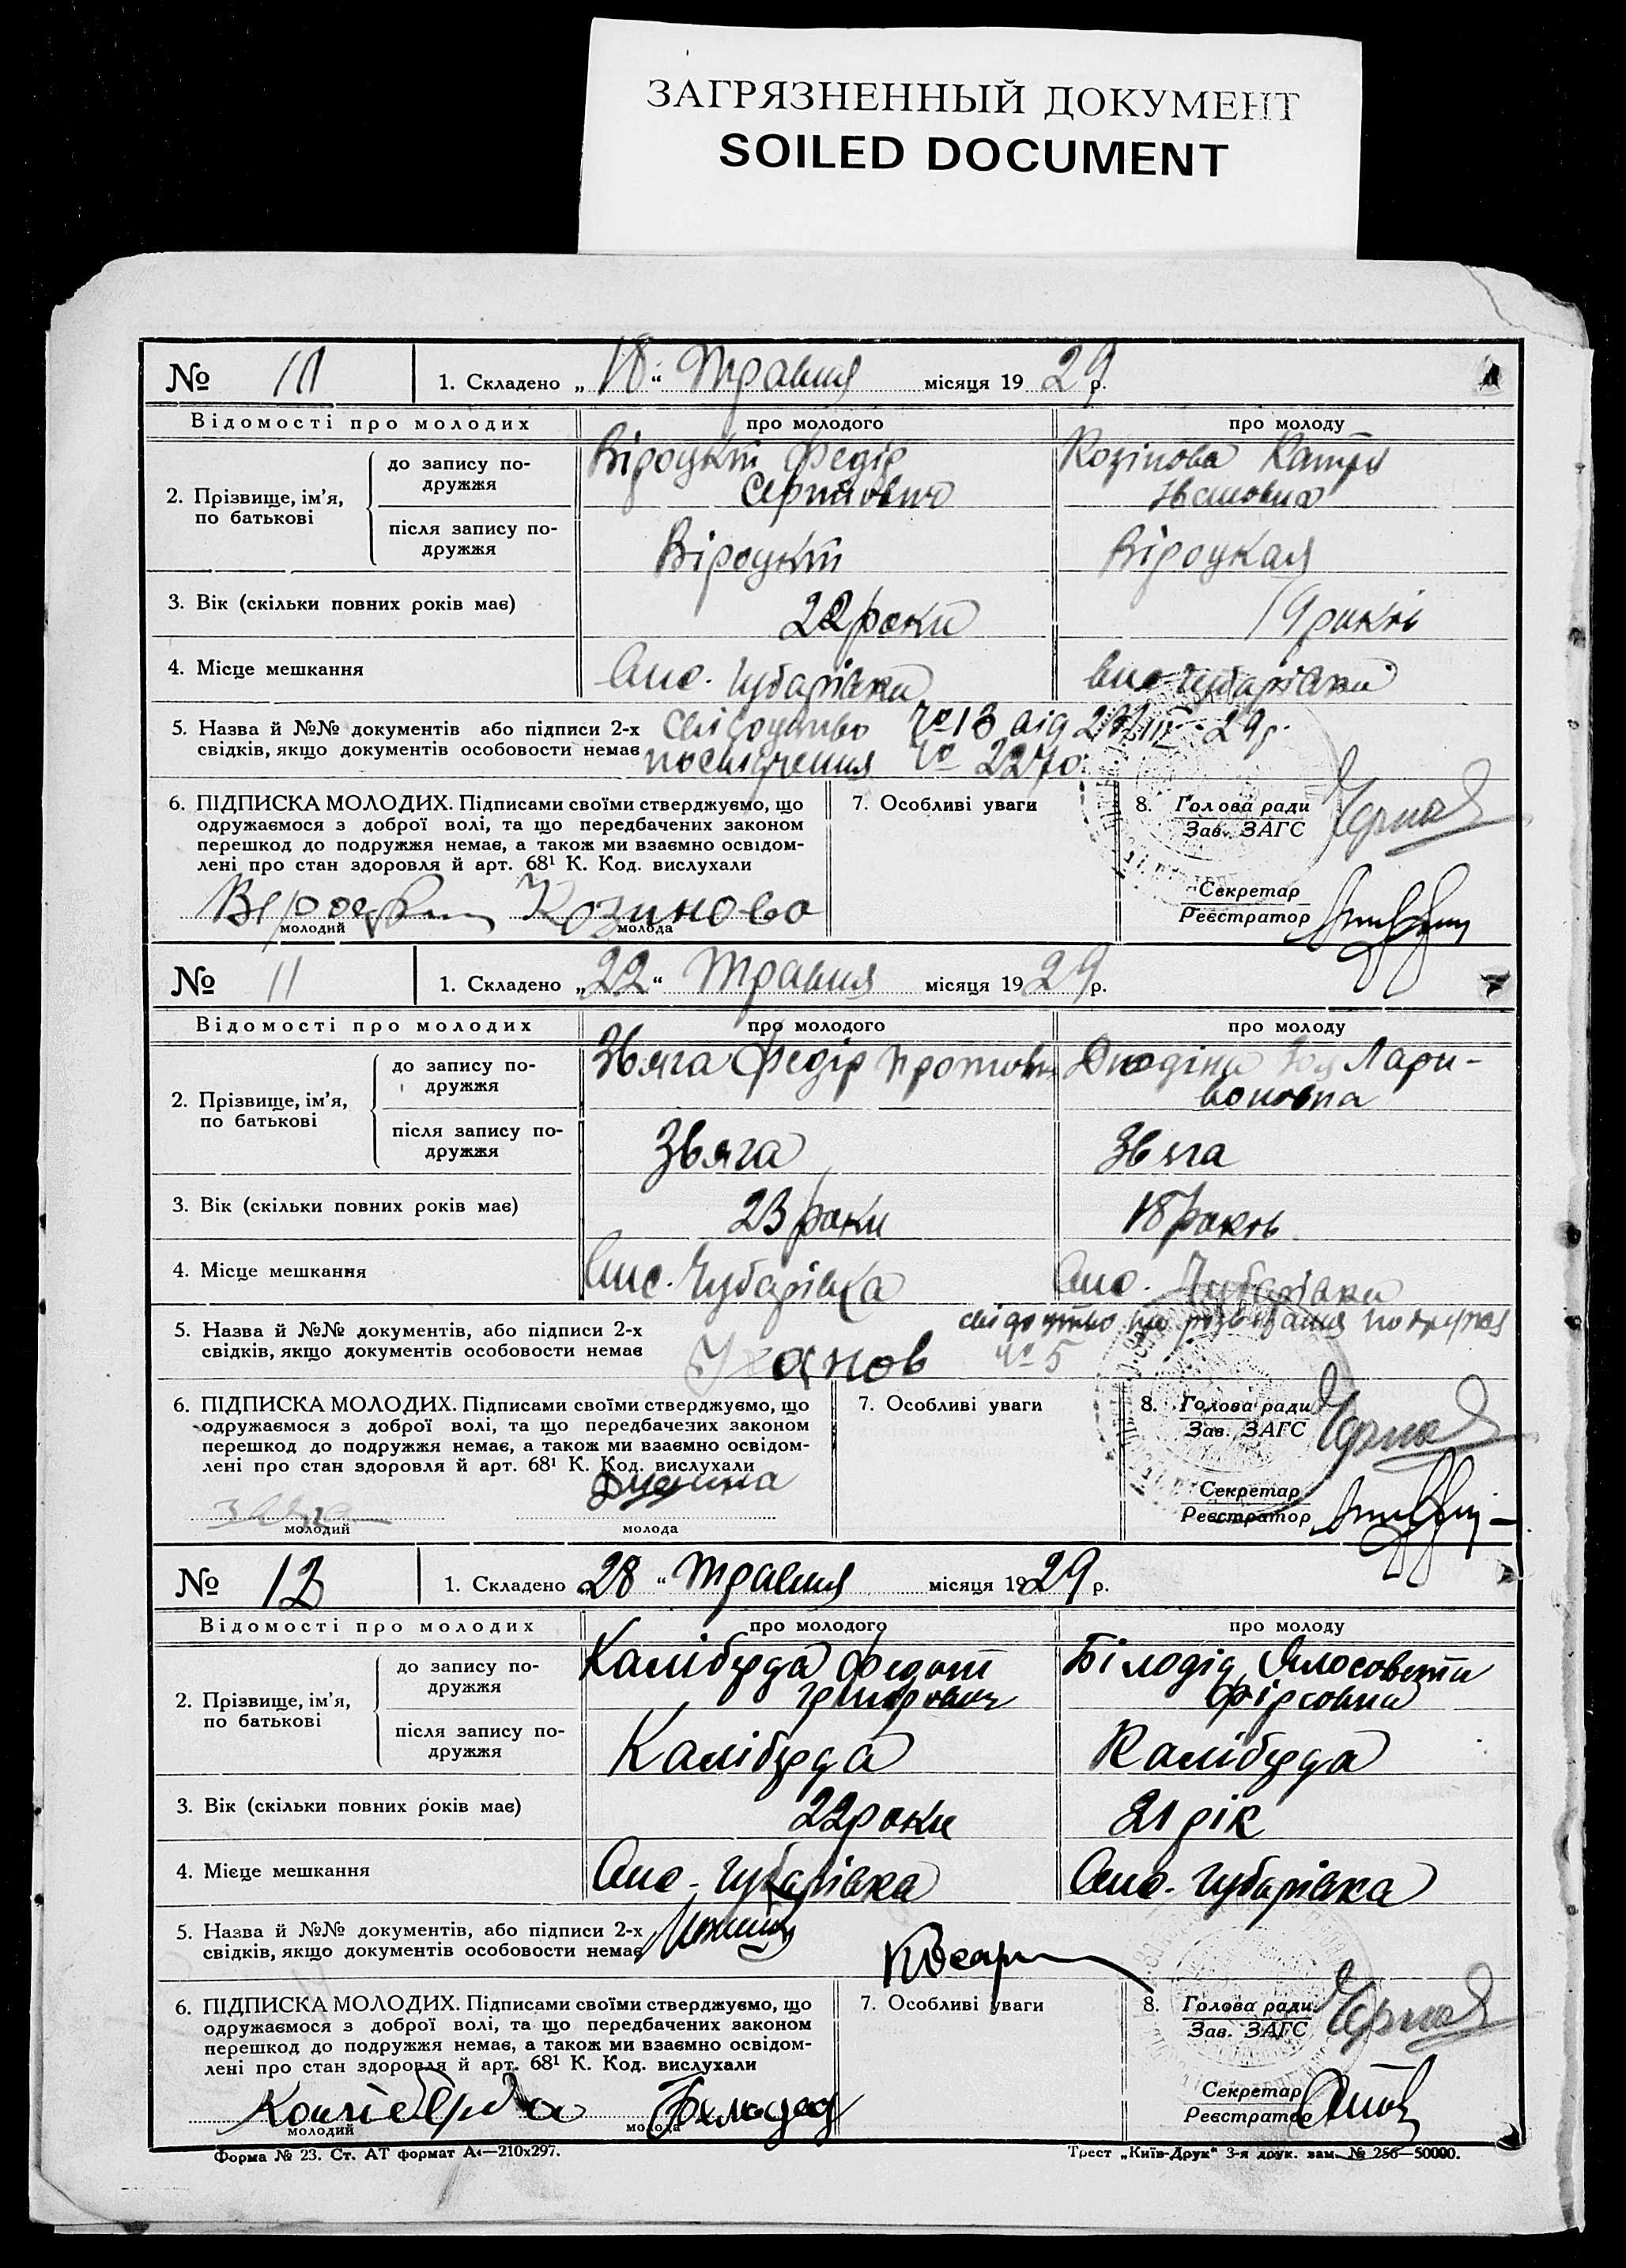 ЗАГРЯЗНЕННЫЙ ДОКУМЕНТ
SOILED DOCUMENT
№ 1. Складено „18“ Травня місяця 1929 р.
Відомості про молодих про молодого про молоду
2. Прізвище, ім’я, по батькові
до запису по-
дружжя
Віроцкій Федір Козінова Катря
Сергійович Ивановна
після запису по-
дружжя
Віроцкій Віроцкая
3. Вік (скільки повних років має) 22 роки 19 років
4. Місце мешкання Чубарівка Чубарівка
5. Назва й №№ документів або підписи 2-х
свідків, якщо документів особовости немає
Свідоцтво № 13 від 29р.
посвідчення № 2270
6. ПІДПИСКА МОЛОДИХ. Підписами своїми стверджуємо, що
одружаємося з доброї волі, та що передбачених законом
перешкод до подружжя немає, а також ми взаємно освідом-
лені про стан здоровля й арт. 68¹ К. Код. вислухали
Козиново
молодий молода
7. Особливі уваги
8. Голова ради
Зав. ЗАГС
Секретар
Реєстратор
№ 11 1. Складено „22“ Травня місяця 1929 р.
Відомості про молодих про молодого про молоду
2. Прізвище, ім’я, по батькові
до запису по-
дружжя
Звяга Федір Лари-
воновна
після запису по-
дружжя
Звяга Звяга
3. Вік (скільки повних років має) 23 роки 18 років
4. Місце мешкання Чубарівка Чубарівка
5. Назва й №№ документів, або підписи 2-х
свідків, якщо документів особовости немає
свідоцтво про розірвання подружжя
№ 5
6. ПІДПИСКА МОЛОДИХ. Підписами своїми стверджуємо, що
одружаємося з доброї волі, та що передбачених законом
перешкод до подружжя немає, а також ми взаємно освідом-
лені про стан здоровля й арт. 68¹ К. Код. вислухали
молодий молода
7. Особливі уваги
8. Голова ради
Зав. ЗАГС
Секретар
Реєстратор
№ 1. Складено „28“ Травня місяця 1929 р.
Відомості про молодих про молодого про молоду
2. Прізвище, ім’я, по батькові
до запису по-
дружжя
Калібурда Федот Білодід
Григорович Фірсовна
після запису по-
дружжя
Калібурда Калібурда
3. Вік (скільки повних років має) 22 роки 21 рік
4. Місце мешкання Чубарівка Чубарівка
5. Назва й №№ документів, або підписи 2-х
свідків, якщо документів особовости немає
6. ПІДПИСКА МОЛОДИХ. Підписами своїми стверджуємо, що
одружаємося з доброї волі, та що передбачених законом
перешкод до подружжя немає, а також ми взаємно освідом-
лені про стан здоровля й арт. 68¹ К. Код. вислухали
молодий молода
7. Особливі уваги
8. Голова ради
Зав. ЗАГС
Секретар
Реєстратор
Форма № 23. Ст. АТ формат А₄—210х297. Трест „Київ-Друк“ 3-я друк. зам. № 256—50000.